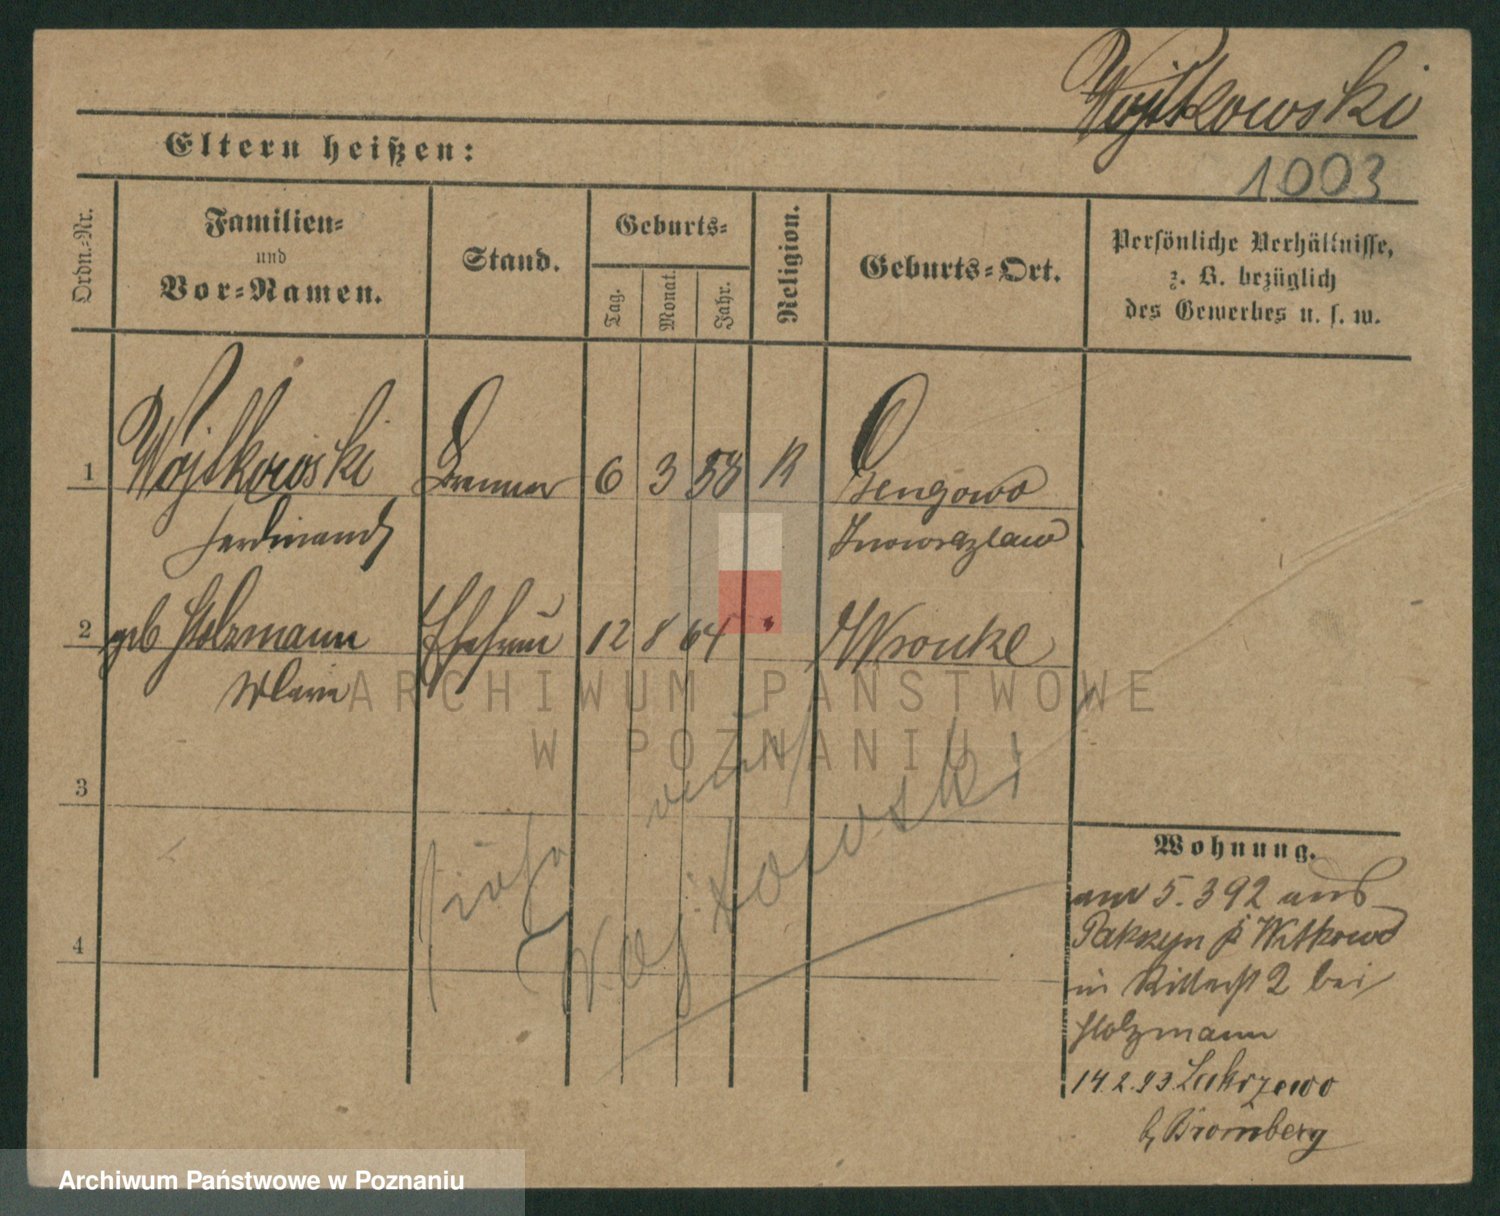 Wojtkowski
1003
Eltern heißen:
Ordn.-Nr.
Familien-
und
Vor-Namen.
Stand.
Geburts-
Tag.
Monat.
Jahr.
Religion.
Geburts-Ort.
Persönliche Verhältnisse,
z. B. bezüglich
des Gewerbes u. s. w.
1 Wojtkowski Brenner 6 3 58 R
Ferdinand Inowrazlaw
2 geb Holzmann Ehefrau 12 8 64 " Wronke
Marie
ARCHIWUM PAŃSTWOWE
W POZNANIU
3
siehe auch
Wojtkowski
4
Wohnung.
am 5. 3 92 aus
Witkowo
in 2 bei
Holzmann
14. 2. 93. Zakrzewo
b. Bromberg
Archiwum Państwowe w Poznaniu